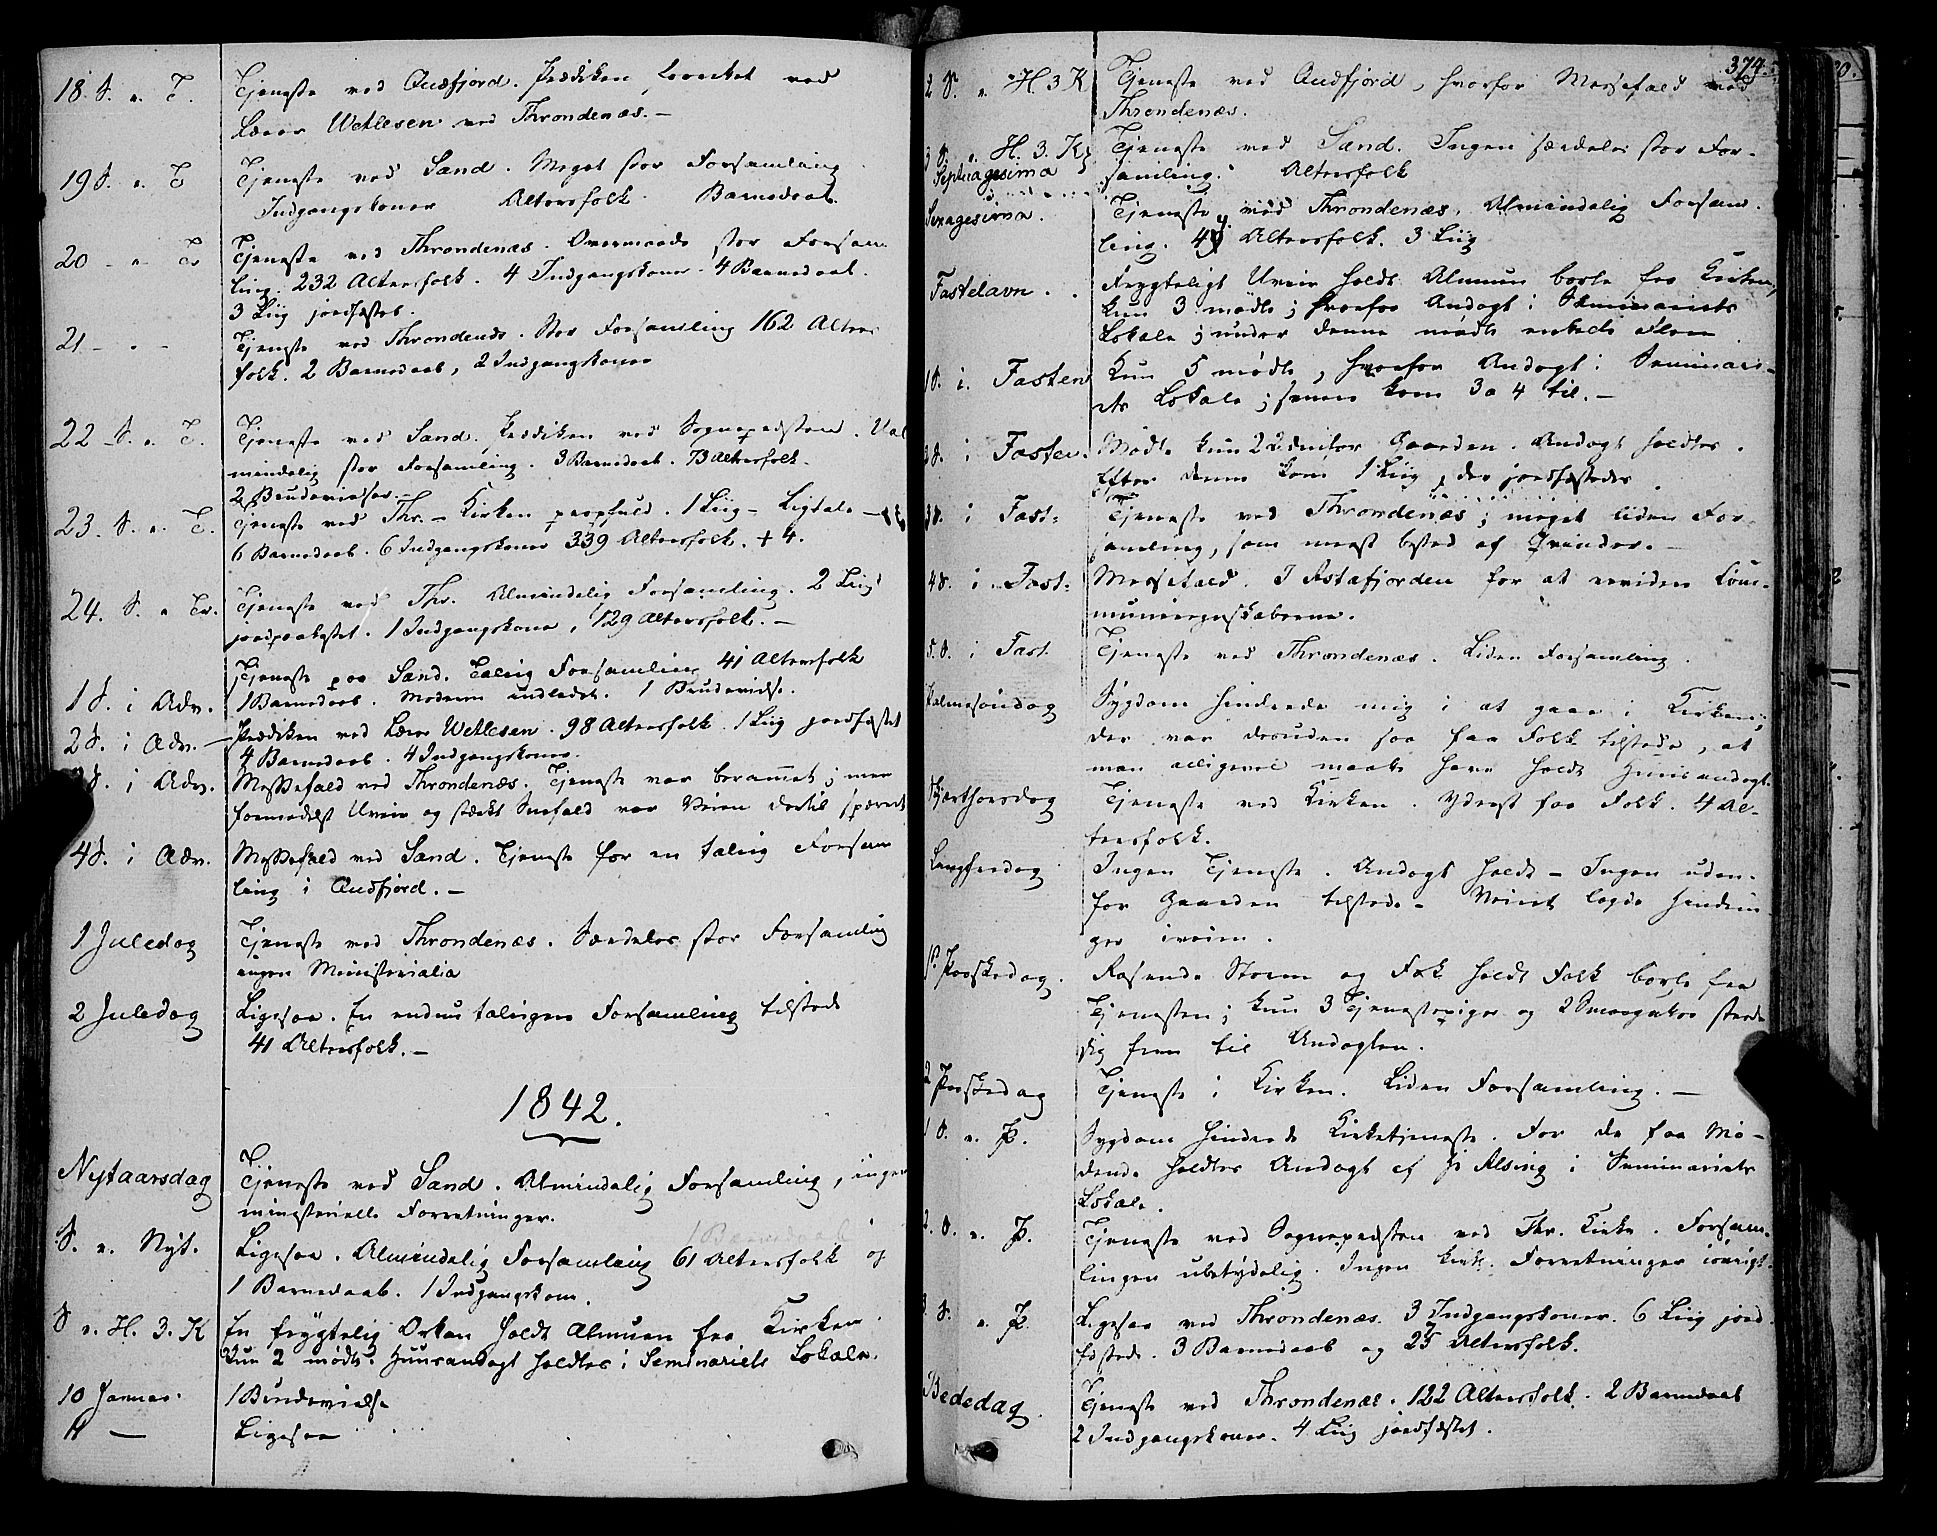 18. S. e. T.
Tjeneste ved Qvæfjord. Prædiken, besørget ved
Lærer Wetlesen ved Throndenæs. —
19 S. e. T
Tjeneste ved Sand. Meget stor Forsamling
Indgangskoner Altersfolk. Barnedaab.
20 - e Tr
Tjeneste ved Throndenæs. Overmaade stor Forsam
ling. 232 Altersfolk. 4 Indgangskoner. 4 Barnedaab.
3 Liig jordfæstet.
21 - - -
Tjeneste ved Throndenæs. Stor Forsamling 162 Alters
folk. 2 Barnedaab, 2 Indgangskoner
22 - S. e. T.
Tjeneste ved Sand. Prædiken ved Sognepræsten. Ual
mindelig stor Forsamling. 3 Barnedaab. 73 Altersfolk.
2 Brudevielser. —
23. S. e. T.
Tjeneste ved Thr. — Kirken propfuld. 1 Liig — Ligtale —
6 Barnedaab. 6 Indgangskoner 339 Altersfolk. + 4.
24. S. e Tr.
Tjeneste ved Thr. Almindelig Forsamling. 2 Liig
jordpaakastet. 1 Indgangskone, 129 Altersfolk. —
1 S. i Adv.
Tjeneste paa Sand. Talrig Forsamling 41 Altersfolk
1 Barnedaab. Moderen indledet. 1 Brudevielse.
2 S. i Adv. —
Prædiken ved Lærer Wetlesen. 98 Altersfolk. 1 Liig jordfæstet
4 Barnedaab. 4 Indgangskoner.
3 S. i Adv.
Messefald ved Throndenæs. Tjeneste var berammet; men
formedelst Uveir og stærkt Snefald var Veien dertil spærret
4 S. i Adv.
Messefald ved Sand. Tjeneste for en talrig Forsam
ling i Qvæfjord. —
1 Juledag
Tjeneste ved Throndenæs. Særdeles stor Forsamling
ingen Ministerialia
2 Juledag
Ligesaa. En endnu talrigere Forsamling tilstede
41 Altersfolk. —
1842.
Nytaarsdag
Tjeneste ved Sand. Almindelig Forsamling, ingen
ministerielle Forretninger.
S. e. Nyt.
1 Barnedaab
Ligesaa. Almindelig Forsamling 61 Altersfolk og
1 Barnedaab. 1 Indgangskone.
S e. H. 3. K
En frygtelig Orkan holdt Almuen fra Kirken.
Kun 2 mødte. Huusandagt holdtes i Seminariets Lokale.
10 Januar.
1 Brudevielse
11 —
Ligesaa
374.
2 S. e. H. 3 K
Tjeneste ved Qvæfjord, hvorfor Messefald ved
Throndenæs.
3 S. e. H. 3. K
Septuagesima
Tjeneste ved Sand. Ingen særdeles stor For-
samling. Altersfolk
Sexagesima.
Tjeneste ved Throndenæs. Almindelig Forsam
ling. 49 Altersfolk. 3 Liig
Fastelavn.
Frygteligt Uveir holdt Almuen borte fra Kirken,
kun 3 mødte; hvorfor Andagt i Seminariets
Lokale; under denne mødte enkelte Flere
1 S. i. Fasten
Kun 5 mødte, hvorfor Andagt i Seminari-
ets Lokale; senere kom 3 a 4 til. —
2 S. i Fasten.
Mødte kun 2 udenfor Gaarden. Andagt holdtes.
Efter denne kom 1 Liig, der jordfæstedes
3 S. i Fast:
Tjeneste ved Throndenæs; meget liden For-
samling, som mest bestod af Qvinder. —
4 S. i Fast:
Messefald. I Astafjorden for at revidere Com-
muneregnskaberne.
5. S. i Fast.
Tjeneste ved Throndenæs. Liden Forsamling.
Palmesøndag
Sygdom hindrede mig i at gaae i Kirken;
der var desuden saa faa Folk tilstede, at
man alligevel maatte have holdt Huusandagt.
Skjærthorsdag
Tjeneste ved Kirken. Yderst faa Folk. 4 Al-
tersfolk.
Langfredag
Ingen Tjeneste. Andagt holdt — Ingen uden-
for Gaarden tilstede — Veiret lagde Hindrin
ger iveien.
1. Paaskedag.
Rasende Storm og Fok holdt Folk borte fra
Tjenesten; kun 3 Tjenestepiger og 2 Smaagutter stode
sig frem til Andagten.
2 Paaskedag
Tjeneste i Kirken. Liden Forsamling. —
1 S. e. P.
Sygdom hindrede Kirketjeneste. For de faa Mø-
dende holdtes Andagt af Hr Alsing i Seminariets
Lokale.
2. S. e. P.
Tjeneste ved Sognepræsten ved Thr. Kirke. Forsam-
lingen ubetydelig. Ingen kirk. Forretninger iøvrigt.
3. S. e P.
Ligesaa ved Throndenæs. 3 Indgangskoner. 6 Liig jord
fæstede. 3 Barnedaab og 25 Altersfolk.
Bededag.
Tjeneste ved Throndenæs. 122 Altersfolk. 2 Barnedaab
2 Indgangskoner. 4 Liig jordfæstet.